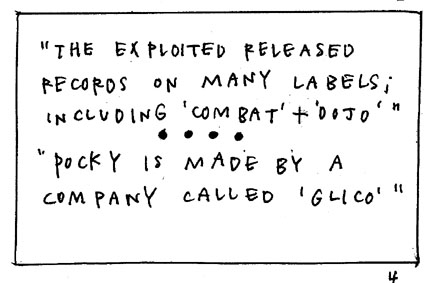 "THE EXPLOITED RELEASED
RECORDS ON MANY LABELS;
INCLUDING 'COMBAT' + 'DOJO' "
"POCKY IS MADE BY A
COMPANY CALLED 'GLICO' "
4